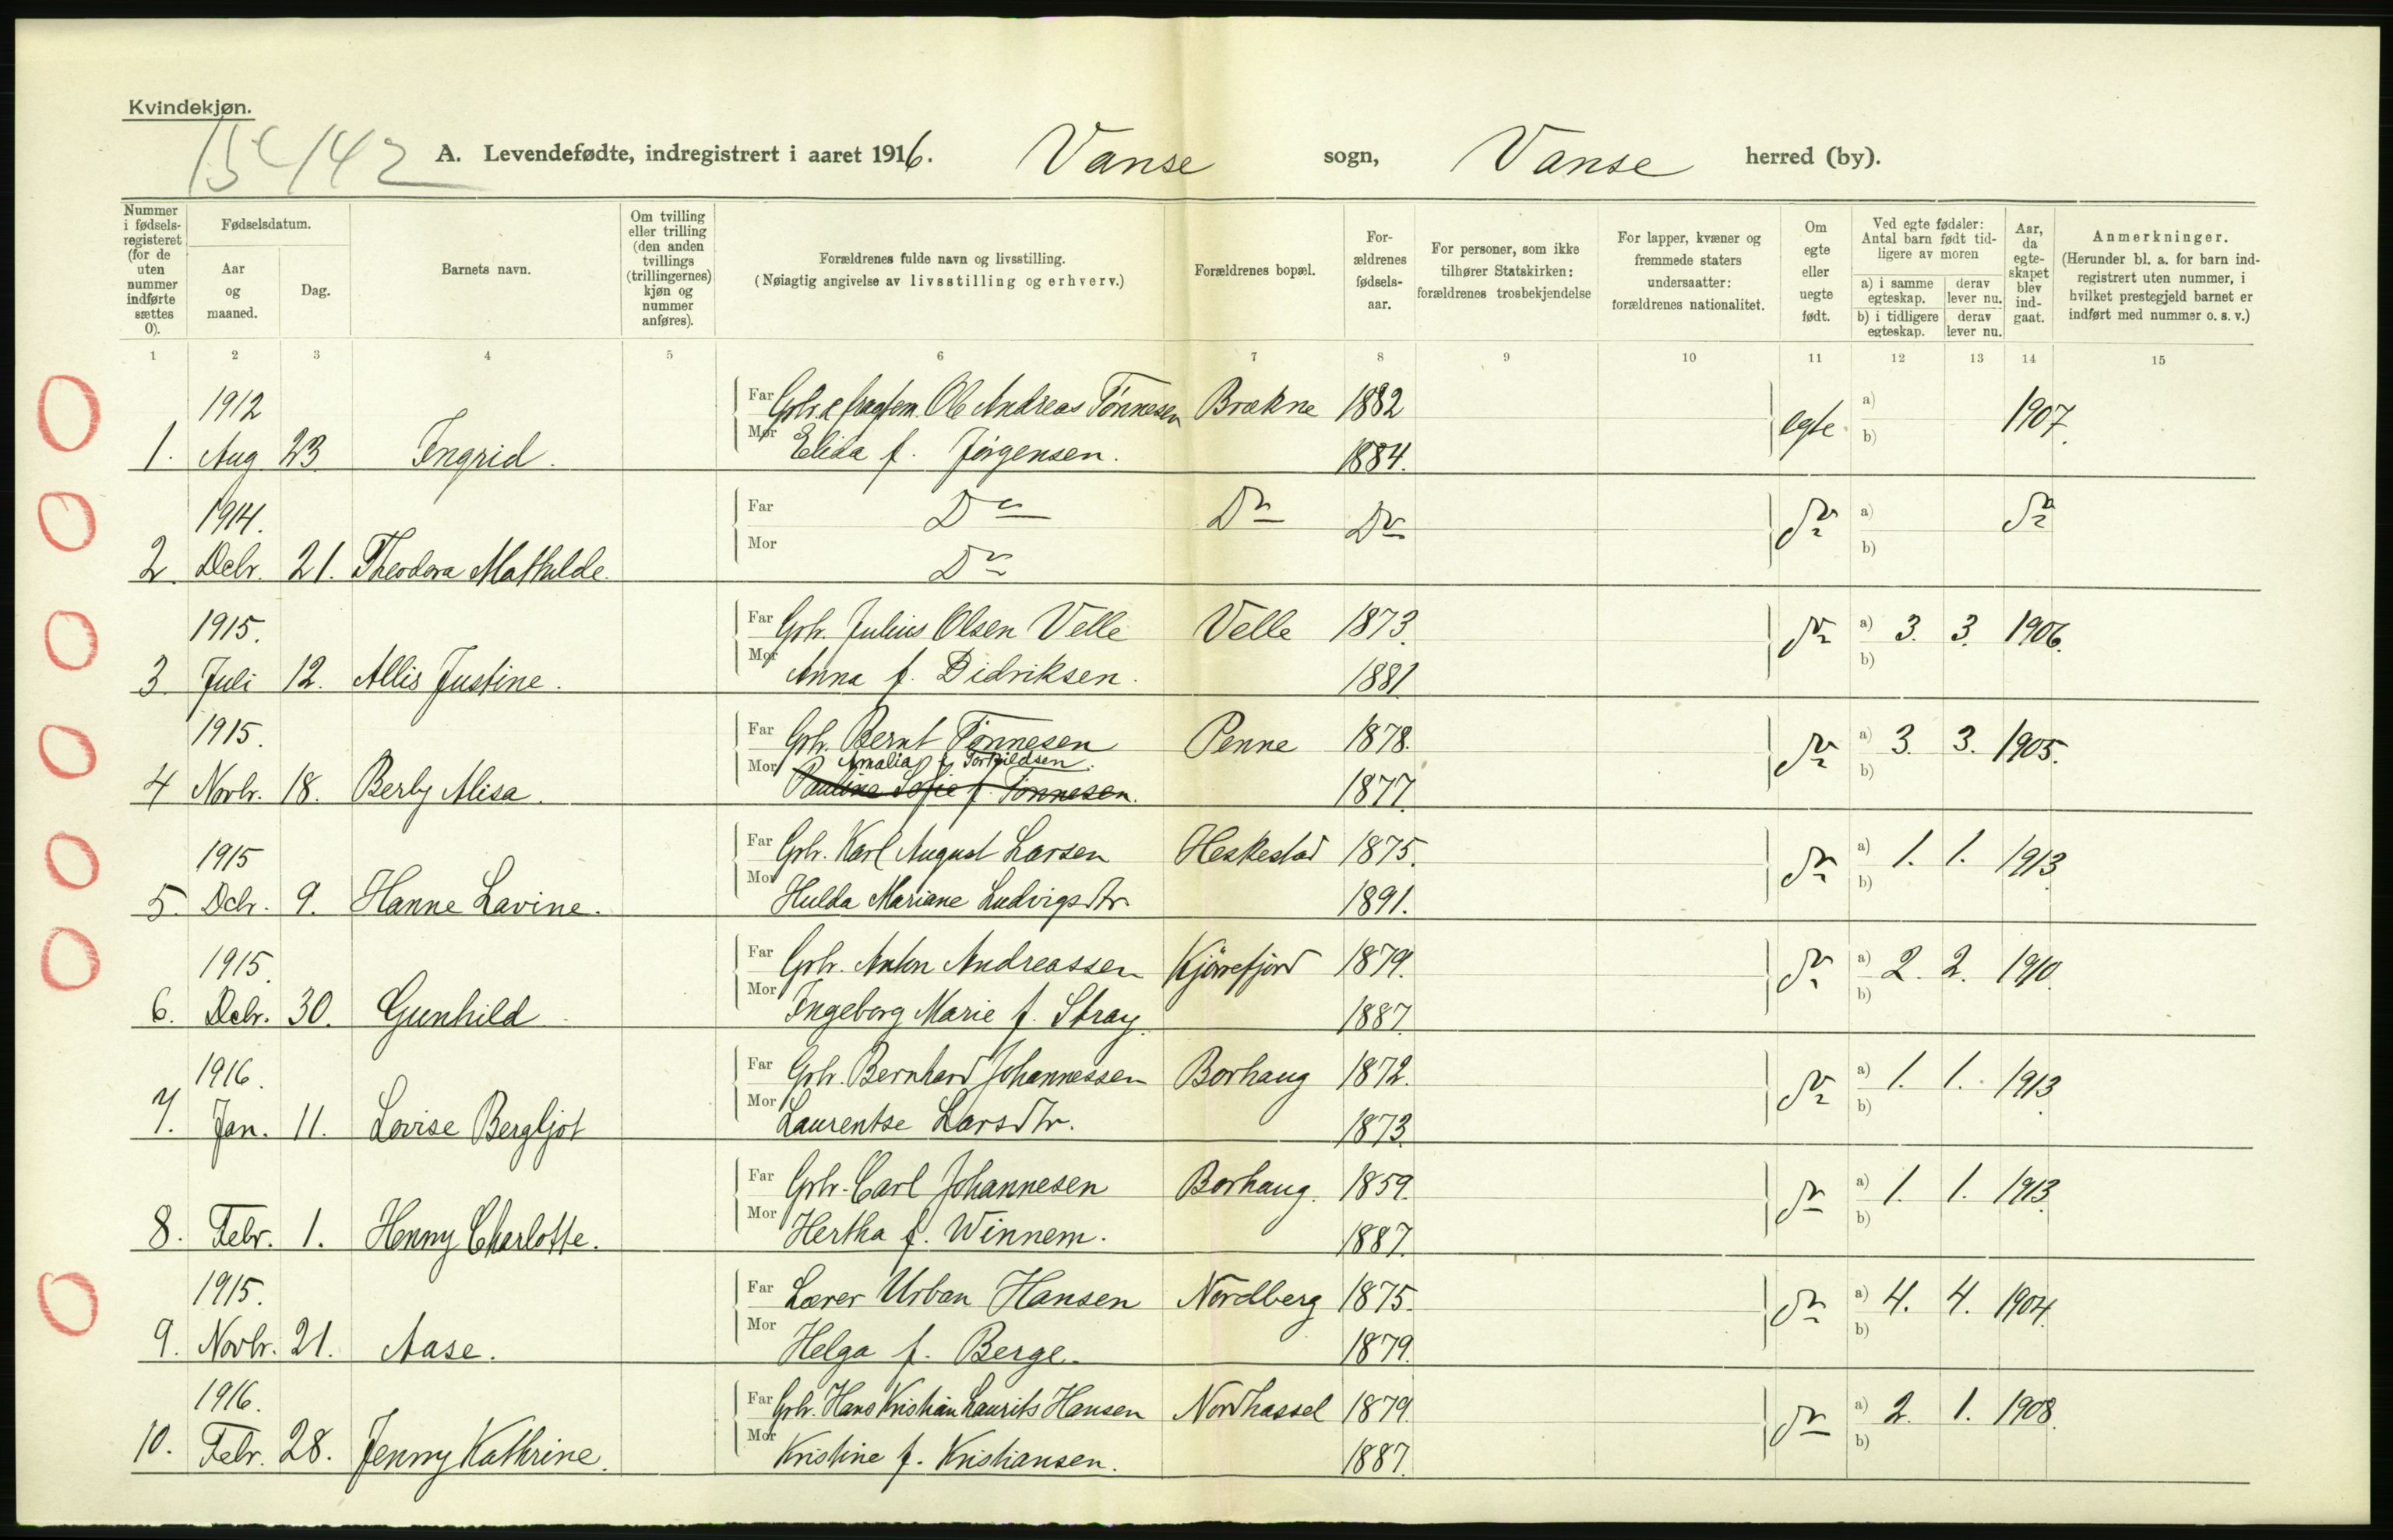 Kvindekjøn.
A. Levendefødte, indregistrert i aaret 1916. Vanse sogn, Vanse herred (by).
Nummer i fødsels-registeret (for de uten nummer indførte sættes 0).
Fødselsdatum.
Aar og maaned.
Dag.
Barnets navn.
Om tvilling eller trilling (den anden tvillings (trillingernes) kjøn og nummer anføres).
Forældrenes fulde navn og livsstilling.
(Nøiagtig angivelse av livsstilling og erhverv.)
Forældrenes bopæl.
For-ældrenes fødsels-aar.
For personer, som ikke tilhører Statskirken: forældrenes trosbekjendelse
For lapper, kvæner og fremmede staters undersaatter: forældrenes nationalitet.
Om egte eller uegte født.
Ved egte fødsler: Antal barn født tid-ligere av moren
a) i samme egteskap. derav lever nu.
b) i tidligere egteskap. derav lever nu.
Aar, da egte-skapet blev ind-gaat.
Anmerkninger.
(Herunder bl. a. for barn ind-registrert uten nummer, i hvilket prestegjeld barnet er indført med nummer o. s. v.)
1 2 3 4 5 6 7 8 9 10 11 12 13 14 15
1912 Far Ole Andreas Tønnesen Brækne 1882 egte a) 1907.
1. Aug 23 Ingrid. Mor Elida f. Jørgensen. 1884. b)
1914. Far Do Do Do do a) do
2. Debr. 21. Theodora Mathilde. Mor Do b)
1915. Far Grbr. Julius Olsen Velle Velle 1873. do a) 3. 3. 1906.
3. Juli 12. Allis Justine. Mor Anna f. Didriksen. 1881. b)
1915. Far Grbr. Bernt Tønnesen Penne 1878. do a) 3. 3. 1905.
Amalia f. Torkildsen.
4 Novbr. 18. Berly Alisa. Mor Pauline Sofie f. Tønnesen. 1877. b)
1915 Far Grbr. Karl August Larsen Heskestad 1875. do a) 1. 1. 1913
5. Debr. 9. Hanne Lavine. Mor Hulda Mariane Ludvigsdtr. 1891. b)
1915. Far Grbr. Anton Andreassen Kjørrefjord 1879. do a) 2. 2. 1910.
6. Debr. 30. Gunhild Mor Ingeborg Marie f. Stray. 1887. b)
1916. Far Grbr. Bernhard Johannessen Borhaug 1872. do a) 1. 1. 1913
7. Jan. 11. Lovise Bergljot Mor Laurentse Larsdtr. 1873. b)
Far Grbr. Carl Johannesen Borhaug. 1859. do a) 1. 1. 1913.
8. Febr. 1. Henny Charlotte. Mor Hertha f. Winnem. 1887. b)
1915. Far Lærer Urban Hansen Nordberg 1875. do a) 4. 4. 1904.
9. Novbr. 21. Aase. Mor Helga f. Berge. 1879. b)
1916. Far Grbr. Hans Kristian Laurits Hansen Nordhassel 1879. do a) 2. 1. 1908.
10. Febr. 28. Jenny Kathrine. Mor Kristine f. Kristiansen. 1887. b)